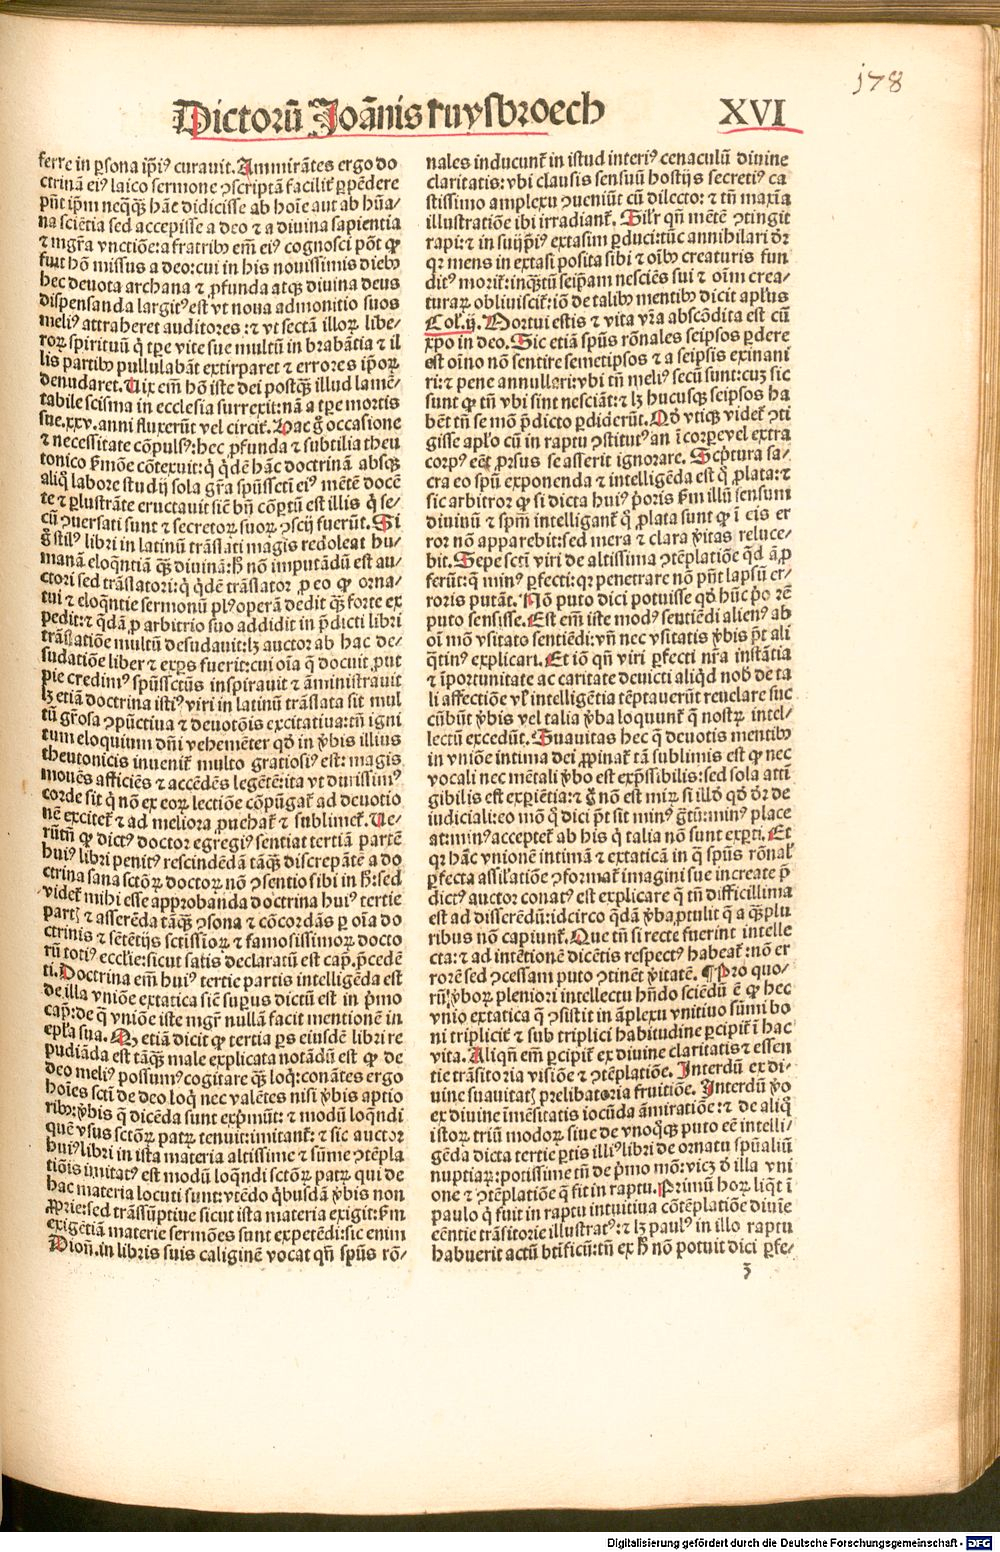 178
Dictorū Joānis ruysbroech XVI
ferre in ꝑsona ip̄iꝰ curauit. Ammirātes ergo do
ctrinā eiꝰ laico sermone ꝯscriptā facilit̄ ꝑpēdere
pn̄t ip̄m neqꝗ̈ hāc didicisse ab hoīe aut ab hūa⸗
na sciētia sed accepisse a deo ⁊ a diuina sapientia
⁊ mgr̄a vnctiōe: a fratribꝰ em̄ eiꝰ cognosci pōt ꝙ
fuit hō missus a deo: cui in his nouissimis diebꝰ
hec deuota archana ⁊ ꝓfunda atqꝫ diuina deus
dispensanda largitꝰ est vt noua admonitio suos
meliꝰ attraheret auditores: ⁊ vt sectā illoꝝ libe⸗
roꝝ spirituū q̇ tꝑe vite sue multū in brabātia ⁊ il
lis partibꝰ pullulabāt extirparet ⁊ errores ip̄oꝝ
denudaret. Uix em̄ hō iste dei postqꝫ illud lamē⸗
tabile scisma in ecclesia surrexit: nā a tꝑe mortis
sue .xxv. anni fluxerūt vel circit̄. Hac g̊ occasione
⁊ necessitate cōpulsꝰ: hec ꝓfunda ⁊ subtilia theu
tonico ẜmōe cōtexuit: q̇ q̇dē hāc doctrinā absqꝫ
aliq̊ labore studij sola gr̄a spūssctī eiꝰ mētē docē
te ⁊ ꝑlustrāte eructauit sic̄ bn̄ cōꝑtū est illis q̇ se⸗
cū ꝯuersati sunt ⁊ secretoꝝ suoꝝ ꝯscij fuerūt. Si
g̊ stilꝰ libri in latinū trāslati magis redoleat hu⸗
manā eloqn̄tiā qꝫ diuinā: h̄ nō imputādū est au⸗
ctori sed trāslatori: q̇ q̇dē trāslator ꝓ eo ꝙ orna⸗
tui ⁊ eloqn̄tie sermonū plꝰ operā dedit qꝫ forte ex
pedit: ⁊ q̄dā ꝓ arbitrio suo addidit in p̄dicti libri
trāslatiōe multū desudauit: lꝫ auctor ab hac de⸗
sudatiōe liber ⁊ exꝑs fuerit: cui oīa q̄ docuit ꝓut
pie credimꝰ spūssctūs inspirauit ⁊ āministrauit
lꝫ etiā doctrina istiꝰ viri in latinū trāslata sit mul
tū gr̄osa ꝯpūctiua ⁊ deuotōis excitatiua: tn̄ igni
tum eloquium dn̄i vehemēter qd̄ in v̄bis illius
theutonicis inuenit̄ multo gratiosiꝰ est: magis
mouēs afficiēs ⁊ accēdēs legētē: ita vt durissimꝰ
corde sit q̇ nō ex eoꝝ lectiōe cōpūgat̄ ad deuotio
nē excitet̄ ⁊ ad meliora ꝓuehat̄ ⁊ sublimet̄. Ue⸗
rūtn̄ ꝙ dictꝰ doctor egregiꝰ sentiat tertiā partē
huiꝰ libri penitꝰ rescindēdā tāqꝫ discrepātē a do
ctrina sana sctōꝝ doctoꝝ nō ꝯsentio sibi in h̄: sed
videt̄ mihi esse approbāda doctrina huiꝰ tertie
part; ⁊ asserēda tāqꝫ ꝯsona ⁊ cōcordās ꝑ oīa do
ctrinis ⁊ sētētijs sctissioꝝ ⁊ famosissimoꝝ docto
rū totiꝰ ecclīe: sicut satis declaratū est cap̄. p̄cedē
ti. Doctrina em̄ huiꝰ tertie partis intelligēda est
de illa vniōe extatica sic̄ supꝰ dictū est in p̄mo
cap̄: de q̄ vniōe iste mgr̄ nullā facit mentionē in
epl̄a sua. Qꝫ etiā dicit ꝙ tertia ꝑs eiusdē libri re
pudiāda est tāqꝫ male explicata notādū est ꝙ de
deo meliꝰ possumꝰ cogitare qꝫ loq̇: conātes ergo
hoīes sctī de deo loq̇ nec valētes nisi v̄bis aptio
ribꝰ: v̄bis q̄ dicēda sunt exp̄mūt: ⁊ modū loqn̄di
quē vsus sctōꝝ patꝝ tenuit: imitant̄: ⁊ sic auctor
huiꝰ libri in ista materia altissime ⁊ sūme ꝯtēpla
tiōis imitatꝰ est modū loqn̄di sctōꝝ patꝝ qui de
hac materia locuti sunt: vtēdo q̇busdā v̄bis non
ꝓprie: sed trāssūptiue sicut ista materia exigit: ẜm
exigētiā materie sermōes sunt expetēdi: sic enim
Dion̄. in libris suis caliginē vocat qn̄ spūs rō⸗
nales inducunt̄ in istud interiꝰ cenaculū diuine
claritatis: vbi clausis sensuū hostijs secretiꝰ ca
stissimo amplexu ꝯueniūt cū dilecto: ⁊ tn̄ maxīa
illustratiōe ibi irradiant̄. Silr̄ qn̄ mētē ꝯtingit
rapi: ⁊ in suijp̄iꝰ extasim ꝑduci: tūc annihilari dr̄
qꝛ mens in extasi posita sibi ⁊ oībꝰ creaturis fun
ditꝰ morit̄: inqꝫtū seip̄am nesciēs sui ⁊ oīm crea⸗
turaꝝ obliuiscit̄: iō de talibꝰ mentibꝰ dicit apl̄us
Col̄. ij. Mortui estis ⁊ vita vr̄a abscōdita est cū
xp̄o in deo. Sic etiā spūs rōnales seipsos ꝑdere
est oīno nō sentire semetipsos ⁊ a seipsis exinani
ri: ⁊ pene annullari: vbi tn̄ meliꝰ secū sunt: cuꝫ sic
sunt ꝙ tn̄ vbi sint nesciāt: ⁊ lꝫ hucusqꝫ seipsos ha
bēt tn̄ se mō p̄dicto ꝑdiderūt. Qd̄ vtiqꝫ videt̄ ꝯti
gisse apl̄o cū in raptu ꝯstitutꝰ an ī corꝑe vel extra
corpꝰ eēt ꝓrsus se asserit ignorare. Scp̄tura sa⸗
cra eo spū exponenda ⁊ intelligēda est q̊ ꝓlata: ⁊
sic arbitror ꝙ si dicta huiꝰ p̄oris ẜm illū sensum
diuinū ⁊ spm̄ intelligant̄ q̊ ꝓlata sunt ꝙ ī eis er
ror nō apparebit: sed mera ⁊ clara v̄itas reluce⸗
bit. Sepe sctī viri de altissima ꝯtēplatiōe q̄dā ꝓ
ferūt: q̄ minꝰ ꝑfecti: qꝛ penetrare nō pn̄t lapsū er⸗
roris putāt. Nō puto dici potuisse qd̄ hūc p̄o rē
puto sensisse. Est em̄ iste modꝰ sentiēdi alienꝰ ab
oī mō vsitato sentiēdi: vn̄ nec vsitatis v̄bis pt̄ ali
q̄tinꝰ explicari. Et iō qn̄ viri ꝑfecti nr̄a instātia
⁊ īportunitate ac caritate deuicti aliqd̄ nob̄ de ta
li affectiōe vl̓ intelligētia tēptauerūt reuelare suc
cūbūt v̄bis vel talia v̄ba loquunt̄ q̄ nostꝝ intel⸗
lectū excedūt. Suauitas hec q̄ deuotis mentibꝰ
in vniōe intima dei ꝓpinat̄ tā sublimis est ꝙ nec
vocali nec mētali v̄bo est exp̄ssibilis: sed sola atti
gibilis est exꝑiētia: ⁊ g̊ nō est miꝝ si illd̄ qd̄ dr̄ de
iudiciali: eo mō q̊ dici pt̄ sit minꝰ gr̄tū: minꝰ place
at: minꝰ acceptet̄ ab his q̇ talia nō sunt exꝑti. Et
qꝛ hāc vnionē intimā ⁊ extaticā in q̄ spūs rōnal̓
ꝑfecta assil̓atiōe ꝯformat̄ imagini sue increate p̄
dictꝰ auctor conatꝰ est explicare q̄ tn̄ difficillima
est ad disserēdū: idcirco q̄dā v̄ba ꝓtulit q̄ a qꝫplu
ribus nō capiunt̄. Que tn̄ si recte fuerint intelle
cta: ⁊ ad intētionē dicētis respectꝰ habeat̄: nō er
rorē sed ꝯcessam puto ꝯtinēt v̄itatē. ¶ Pro quo⸗
rū v̄boꝝ pleniori intellectu hn̄do sciēdū ē ꝙ hec
vnio extatica q̄ ꝯsistit in āplexu vnitiuo sūmi bo
ni triplicit̄ ⁊ sub triplici habitudine ꝑcipit̄ ī hac
vita. Aliqn̄ em̄ ꝑcipit̄ ex diuine claritatis ⁊ essen
tie trāsitoria visiōe ⁊ ꝯtēplatiōe. Interdū ex di⸗
uine suauitat; prelibatoria fruitiōe. Interdū v̄o
ex diuine īmēsitatis iocūda āmiratiōe: ⁊ de aliq̊
istoꝝ triū modoꝝ siue de vnoq̊qꝫ puto eē intelli⸗
gēda dicta tertie ꝑtis illiꝰ libri de ornatu spūaliū
nuptiaꝝ: potissime tn̄ de p̄mo mō: vicꝫ d̓ illa vni
one ⁊ ꝯtēplatiōe q̄ fit in raptu. Primū hoꝝ liqt̄ ī
paulo q̇ fuit in raptu intuitiua cōtēplatiōe diuie
eēntie trāsitorie illustratꝰ: ⁊ lꝫ paulꝰ in illo raptu
habuerit actū btīficū: tn̄ ex h̄ nō potuit dici ꝑfe⸗
3
Digitalisierung gefördert durch die Deutsche Forschungsgemeinschaft - DFG